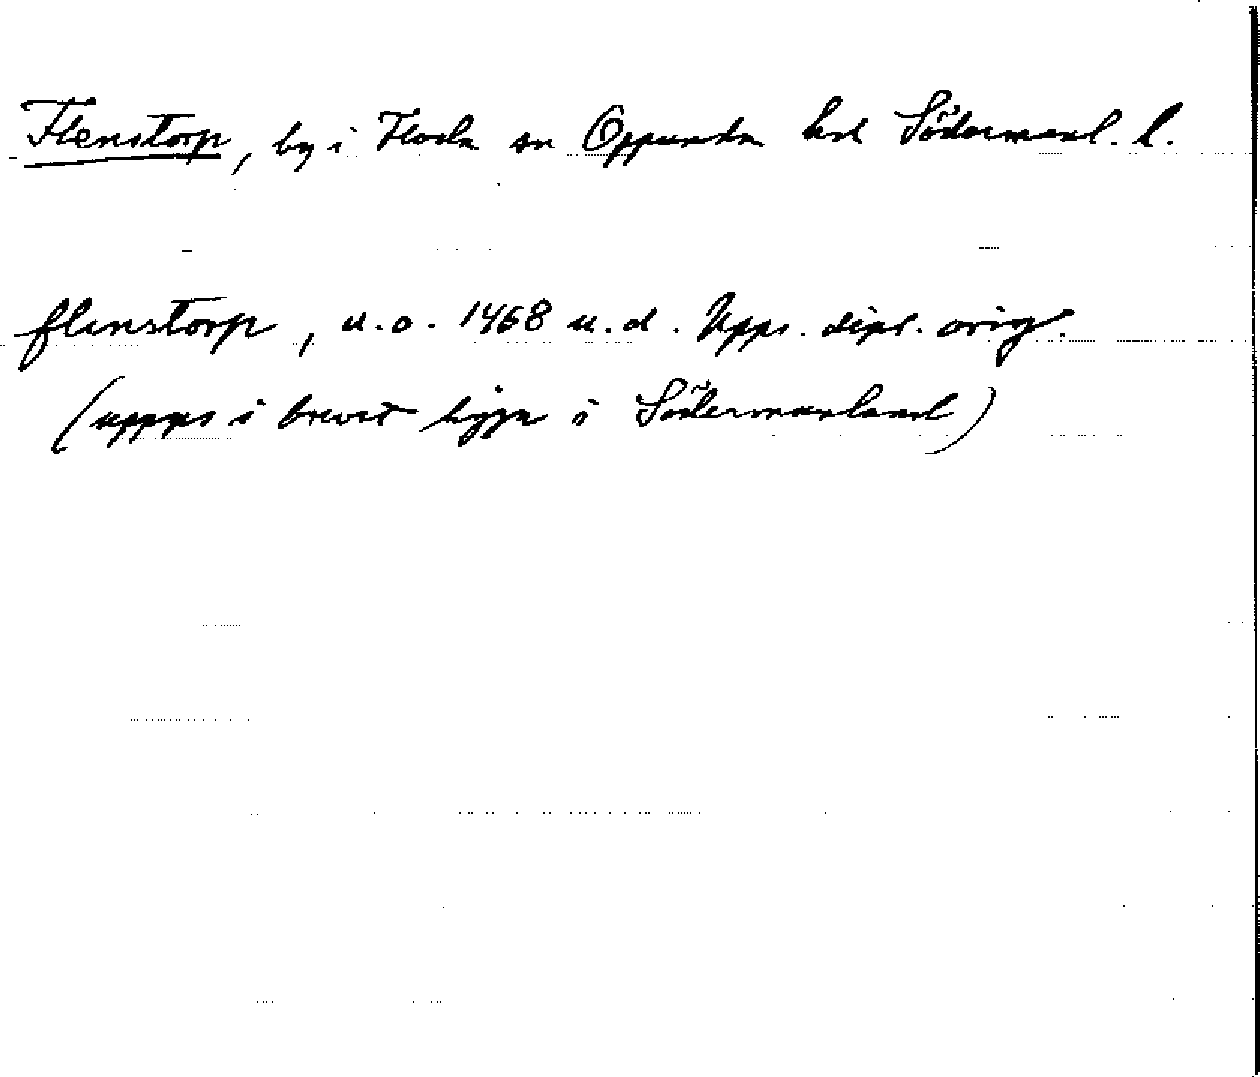 Flenstorp, by i Floda sn Oppunda hd Södermanl. l.
flenstorp, u.o. 1468 u.d. Upps. dipl. orig.
(uppges i brevet ligga i Södermanland)